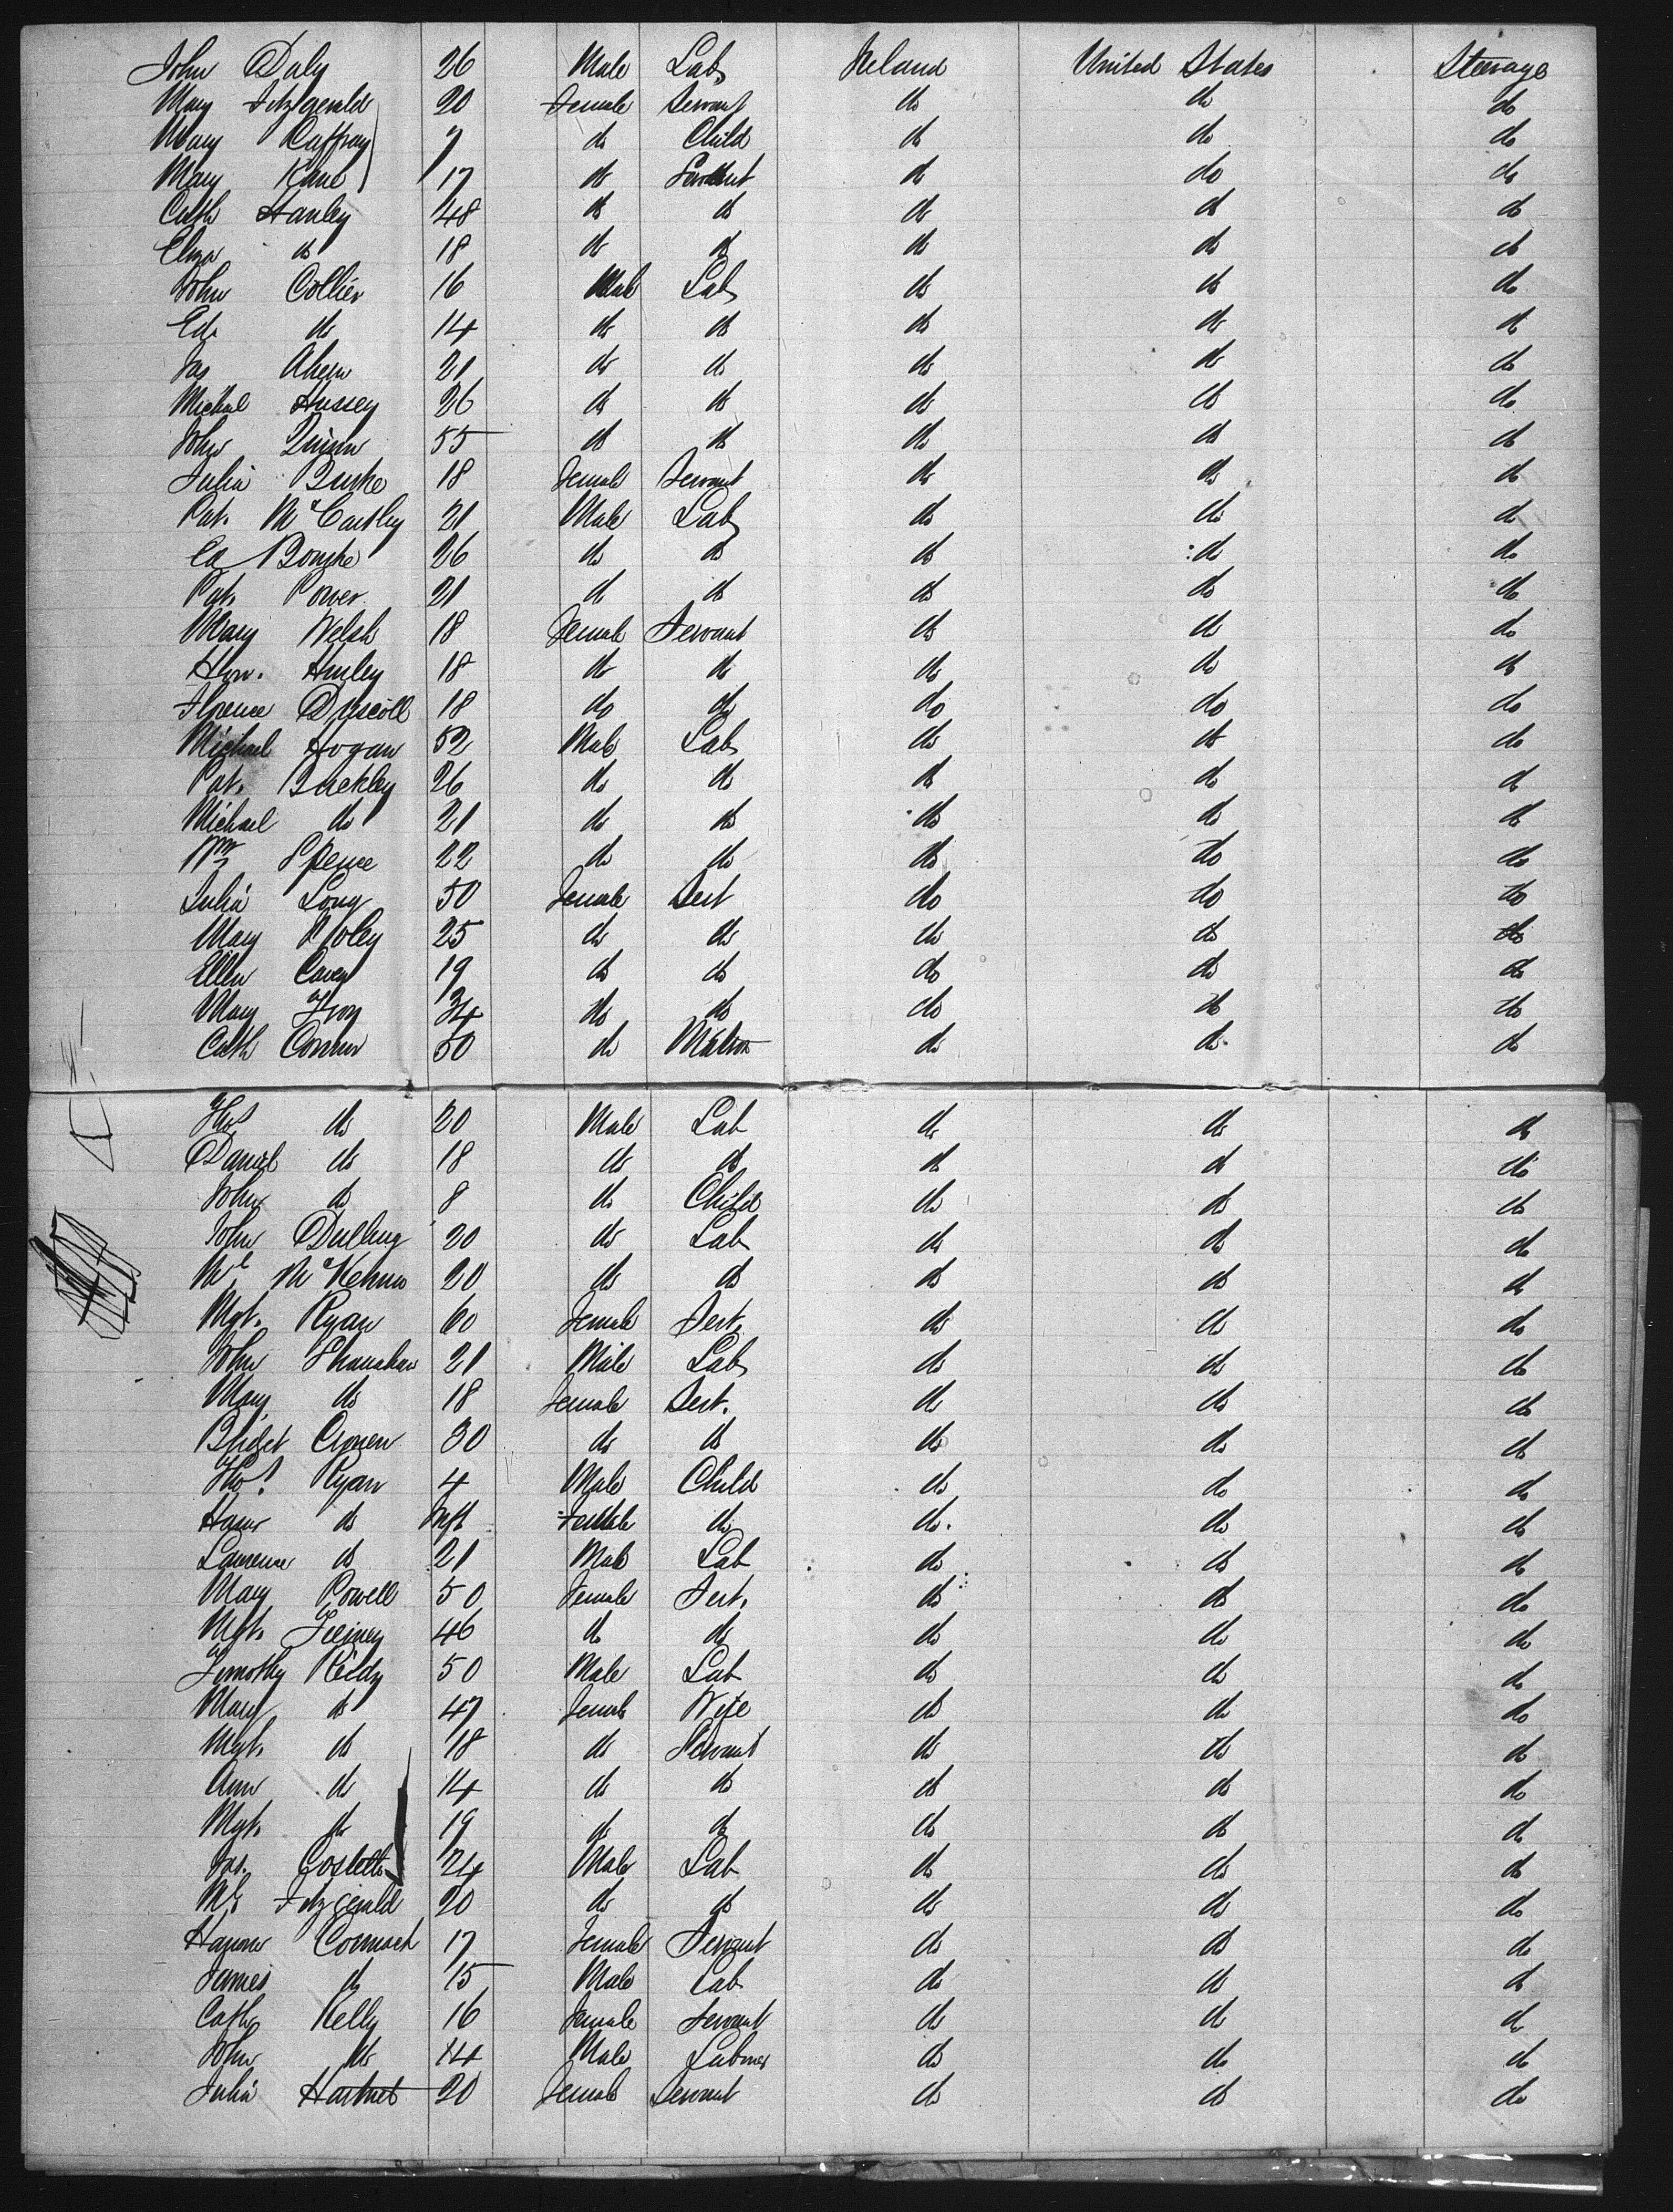 John Daly 26 Male Lab Ireland United States Steerage
Mary Fitzgerald 20 Female Servant do do do
Mary Caffray 7 do Child do do do
Mary Kane 17 do Servant do do do
Cath Hanley 48 do do do do do
Eliza do 18 do do do do do
John Collier 16 Male Lab do do do
Ed. do 14 do do do do do
Jas Ahern 21 do do do do do
Michael Hussey 26 do do do do do
John Quinn 55 do do do do do
Julia Burke 18 Female Servant do do do
Pat. McCarthy 21 Male Lab do do do
Bourke 26 do do do do do
Pat. Power 21 do do do do do
Mary Welsh 18 Female Servant do do do
Hon. Hurley 18 do do do do do
Florence Driscoll 18 do do do do do
Michael Hogan 52 Male Lab do do do
Pat. Buckley 26 do do do do do
Michael do 21 do do do do do
Wm Spence 22 do do do do do
Julia Long 50 Female Sert do do do
Mary 25 do do do do do
Ellen 19 do do do do do
Mary 34 do do do do do
Cath Connor 50 do Matron do do do
Thos do 20 Male Lab do do do
Daniel do 18 do do do do do
John do 8 do Child do do do
John 20 do Lab do do do
Ml McKenna 20 do do do do do
Mgt. Ryan 60 Female Sert. do do do
John Shanahan 21 Male Lab do do do
Mary do 18 Female Sert. do do do
Bridget Cronen 30 do do do do do
Thos Ryan 4 Male Child do do do
do Inft Female do do do do
Laurence do 21 Male Lab do do do
Mary Powell 50 Female Sert. do do do
Mgt. 46 do do do do do
Timothy Reidy 50 Male Lab do do do
Mary do 47 Female Wife do do do
Mgt. do 18 do Servant do do do
Ann do 14 do do do do do
Mgt. do 19 do do do do do
Jas. Costello 24 Male Lab do do do
Ml Fitzgerald 20 do do do do do
Cormack 17 Female Servant do do do
James do 15 Male Lab do do do
Cath Kelly 16 Female Servant do do do
John do 14 Male Labourer do do do
Julia Hartnet 20 Female Servant do do do